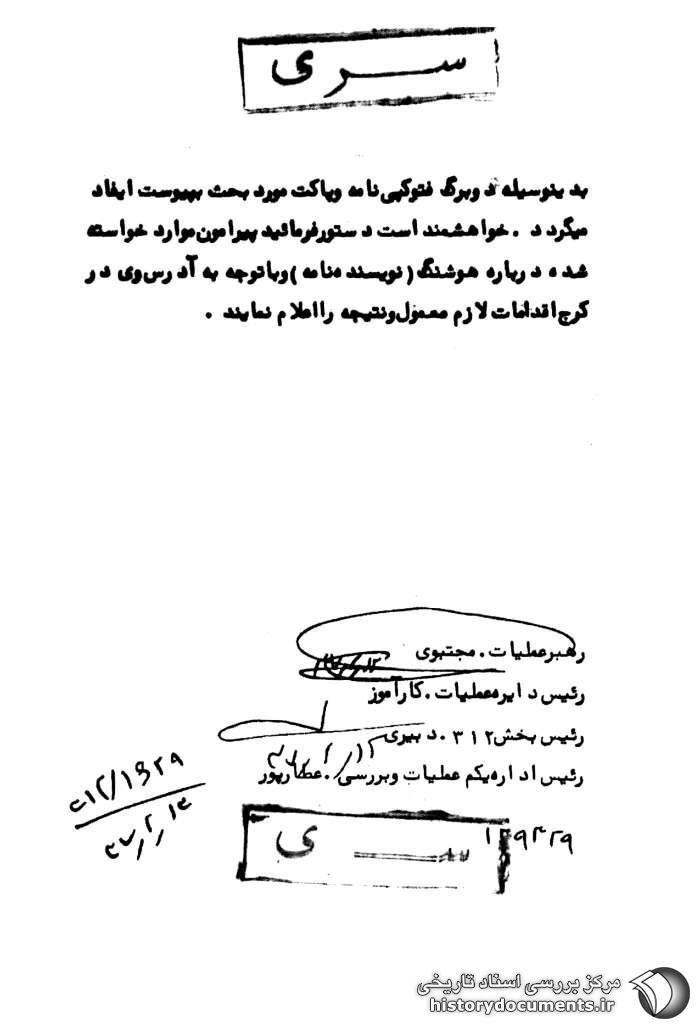 سری
بدینوسیله دوبرگ فتوکپی نامه وپاکت مورد بحث بپیوست ایفاد
میگردد . خواهشمند است دستورفرمائید پیرامون موارد خواسته
شده درباره هوشنگ (نویسنده نامه) وباتوجه به آدرس وی در
کرج اقدامات لازم معمول ونتیجه رااعلام نمایند .
رهبرعملیات . مجتبوی
رئیس دایره عملیات . کارآموز
رئیس بخش ۳۱۲ . دبیری
رئیس اداره یکم عملیات وبررسی . عطارپور
سری
مرکز بررسی اسناد تاریخی
historydocuments.ir